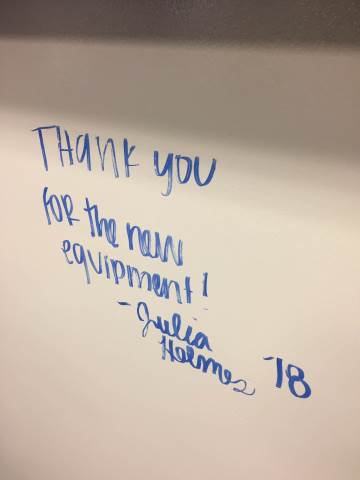 THANK YOU
FOR the new
equipment!
- Julia
Holmes '18